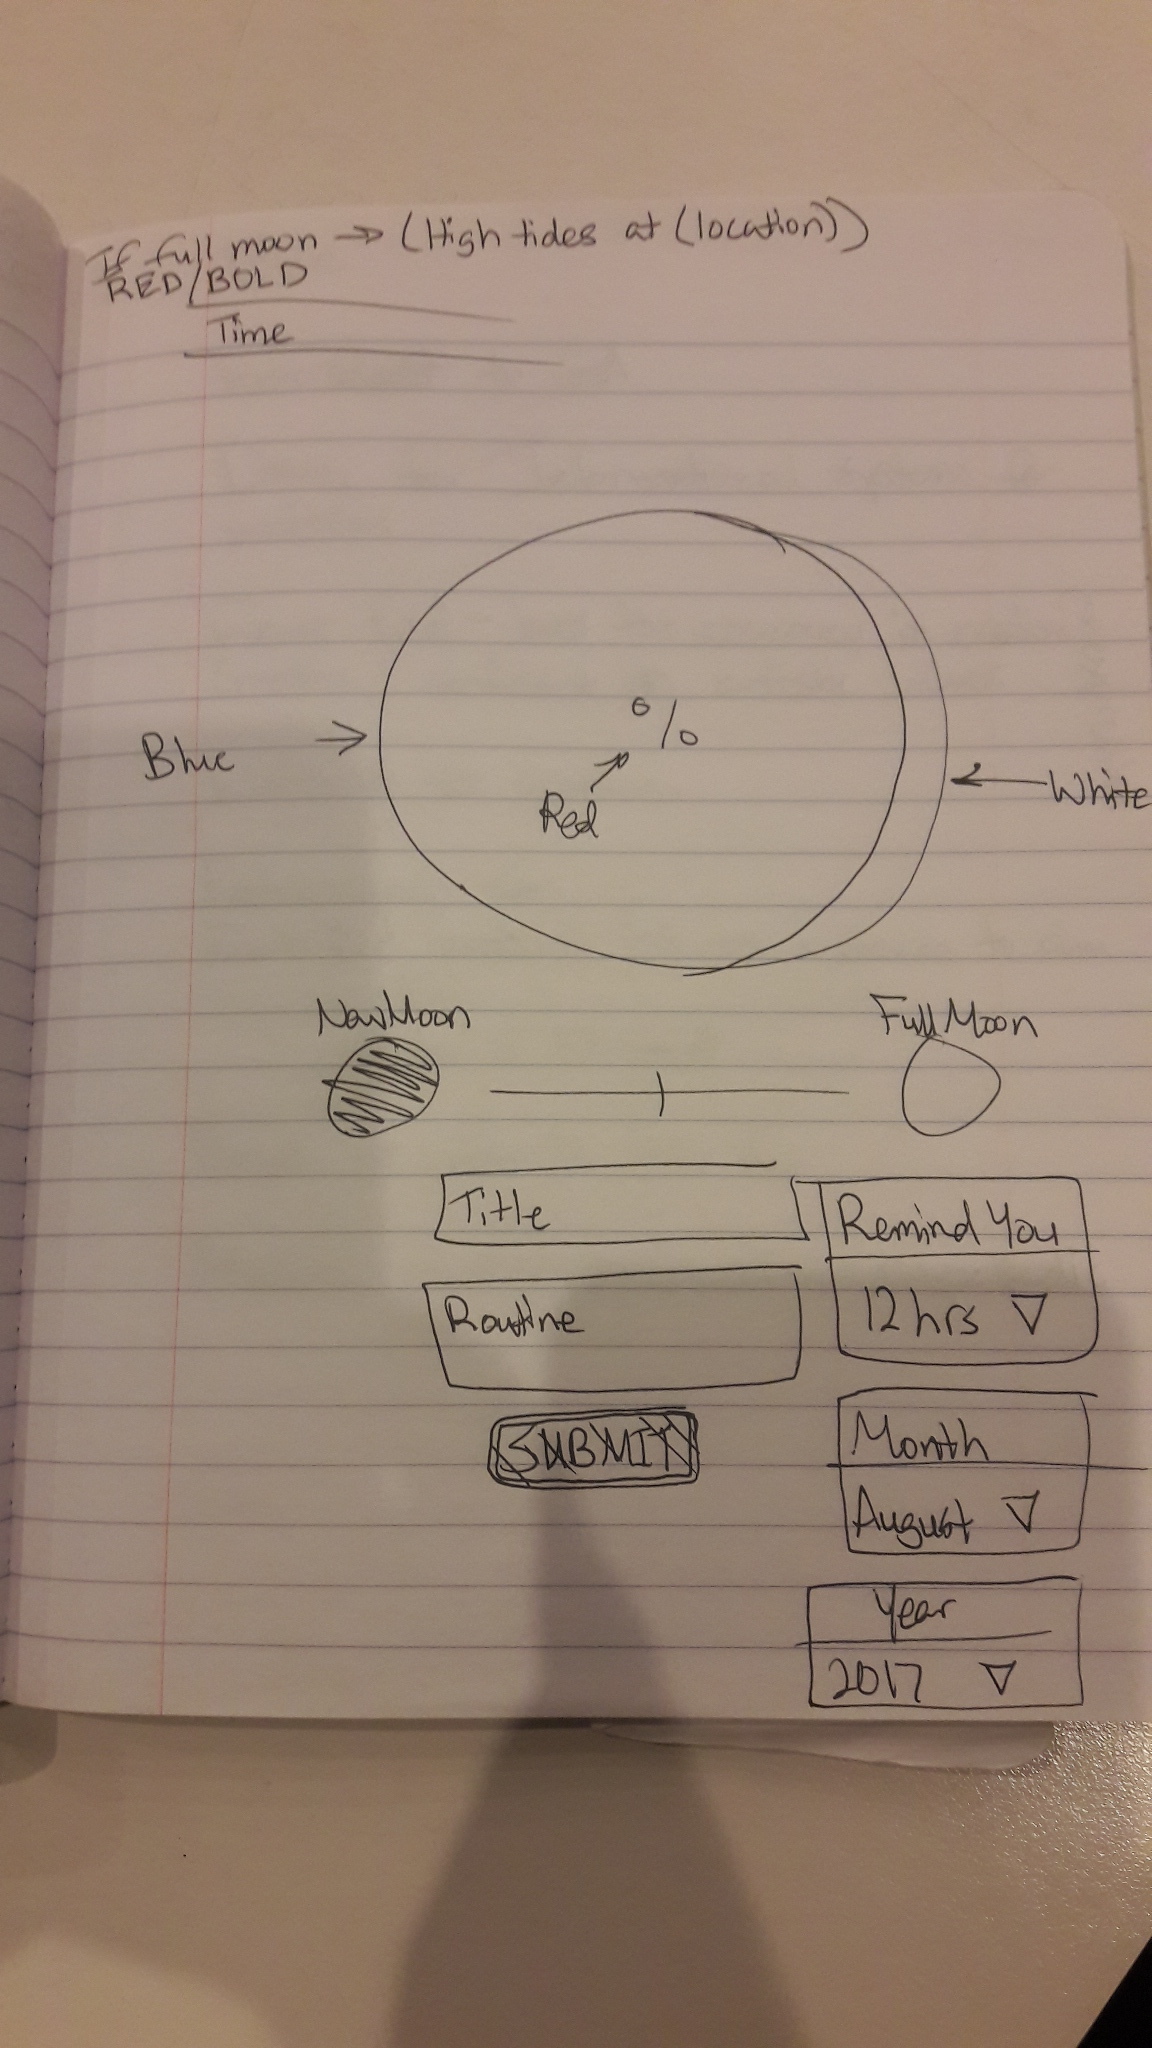 If full moon → (High tides at (location))
RED/BOLD
Time
%
Blue
Red
White
New Moon
Full Moon
Title
Remind You
12 hrs ▽
Routine
SUBMIT
Month
August ▽
Year
2017 ▽